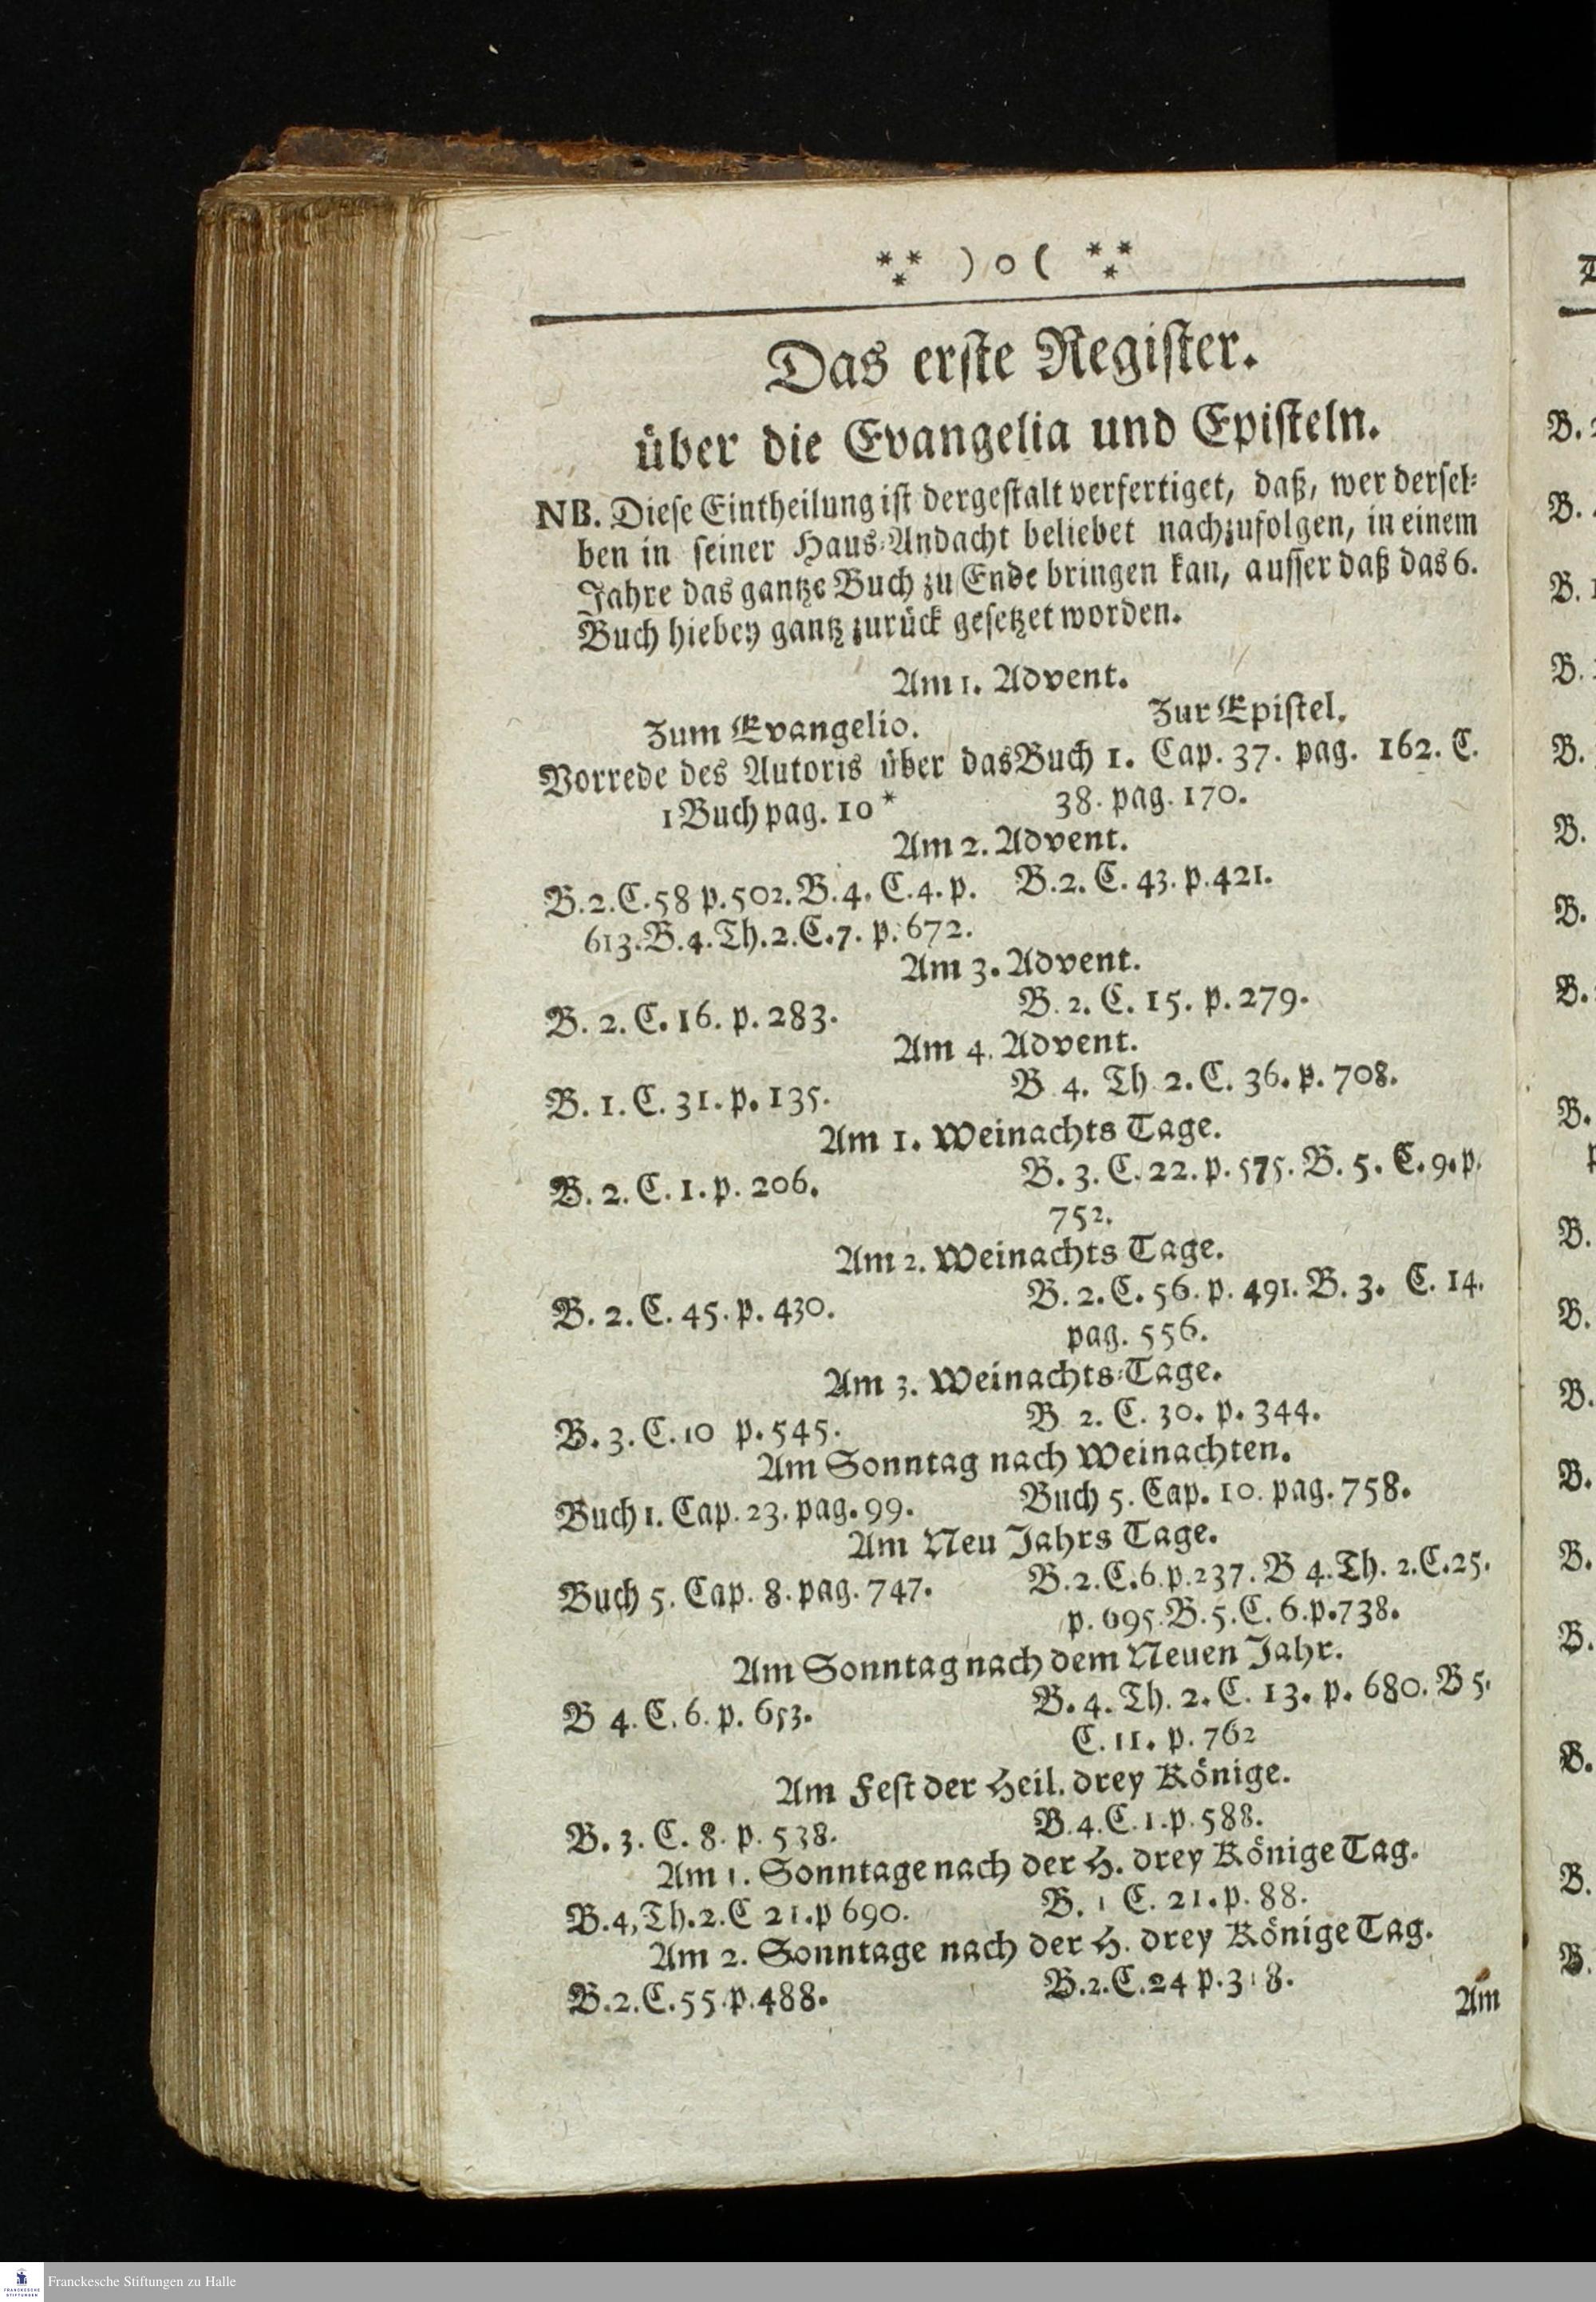 *** ) o ( ***
Das erſte Regiſter.
über die Evangelia und Epiſteln.
NB. Dieſe Eintheilung iſt dergeſtalt verfertiget, daß, wer derſel-
ben in ſeiner Haus-Andacht beliebet nachzufolgen, in einem
Jahre das gantze Buch zu Ende bringen kan, auſſer daß das 6.
Buch hiebey gantz zurück geſetzet worden.
Am 1. Advent.
Zum Evangelio. Zur Epiſtel.
Vorrede des Autoris über das Buch 1. Cap. 37. pag. 162. C.
1 Buch pag. 10* 38. pag. 170.
Am 2. Advent.
B. 2. C. 58 p. 502. B. 4. C. 4. p. B. 2. C. 43. p. 421.
613. B. 4. Th. 2. C. 7. p. 672.
Am 3. Advent.
B. 2. C. 16. p. 283. B. 2. C. 15. p. 279.
Am 4. Advent.
B. 1. C. 31. p. 135. B 4. Th 2. C. 36. p. 708.
Am 1. Weinachts Tage.
B. 2. C. 1. p. 206. B. 3. C. 22. p. 575. B. 5. C. 9. p.
752.
Am 2. Weinachts Tage.
B. 2. C. 45. p. 430. B. 2. C. 56. p. 491. B. 3. C. 14.
pag. 556.
Am 3. Weinachts-Tage.
B. 3. C. 10 p. 545. B 2. C. 30. p. 344.
Am Sonntag nach Weinachten.
Buch 1. Cap. 23. pag. 99. Buch 5. Cap. 10. pag. 758.
Am Neu Jahrs Tage.
Buch 5. Cap. 8. pag. 747. B. 2. C. 6. p. 237. B 4. Th. 2. C. 25.
p. 695. B. 5. C. 6. p. 738.
Am Sonntag nach dem Neuen Jahr.
B 4. C. 6. p. 653. B. 4. Th. 2. C. 13. p. 680. B 5.
C. 11. p. 762
Am Feſt der Heil. drey Könige.
B. 3. C. 8. p. 538. B. 4. C. 1. p. 588.
Am 1. Sonntage nach der H. drey Könige Tag.
B. 4, Th. 2. C 21. p 690. B. 1 C. 21. p. 88.
Am 2. Sonntage nach der H. drey Könige Tag.
B. 2. C. 55. p. 488. B. 2. C. 24 p. 318.
Am
Franckesche Stiftungen zu Halle